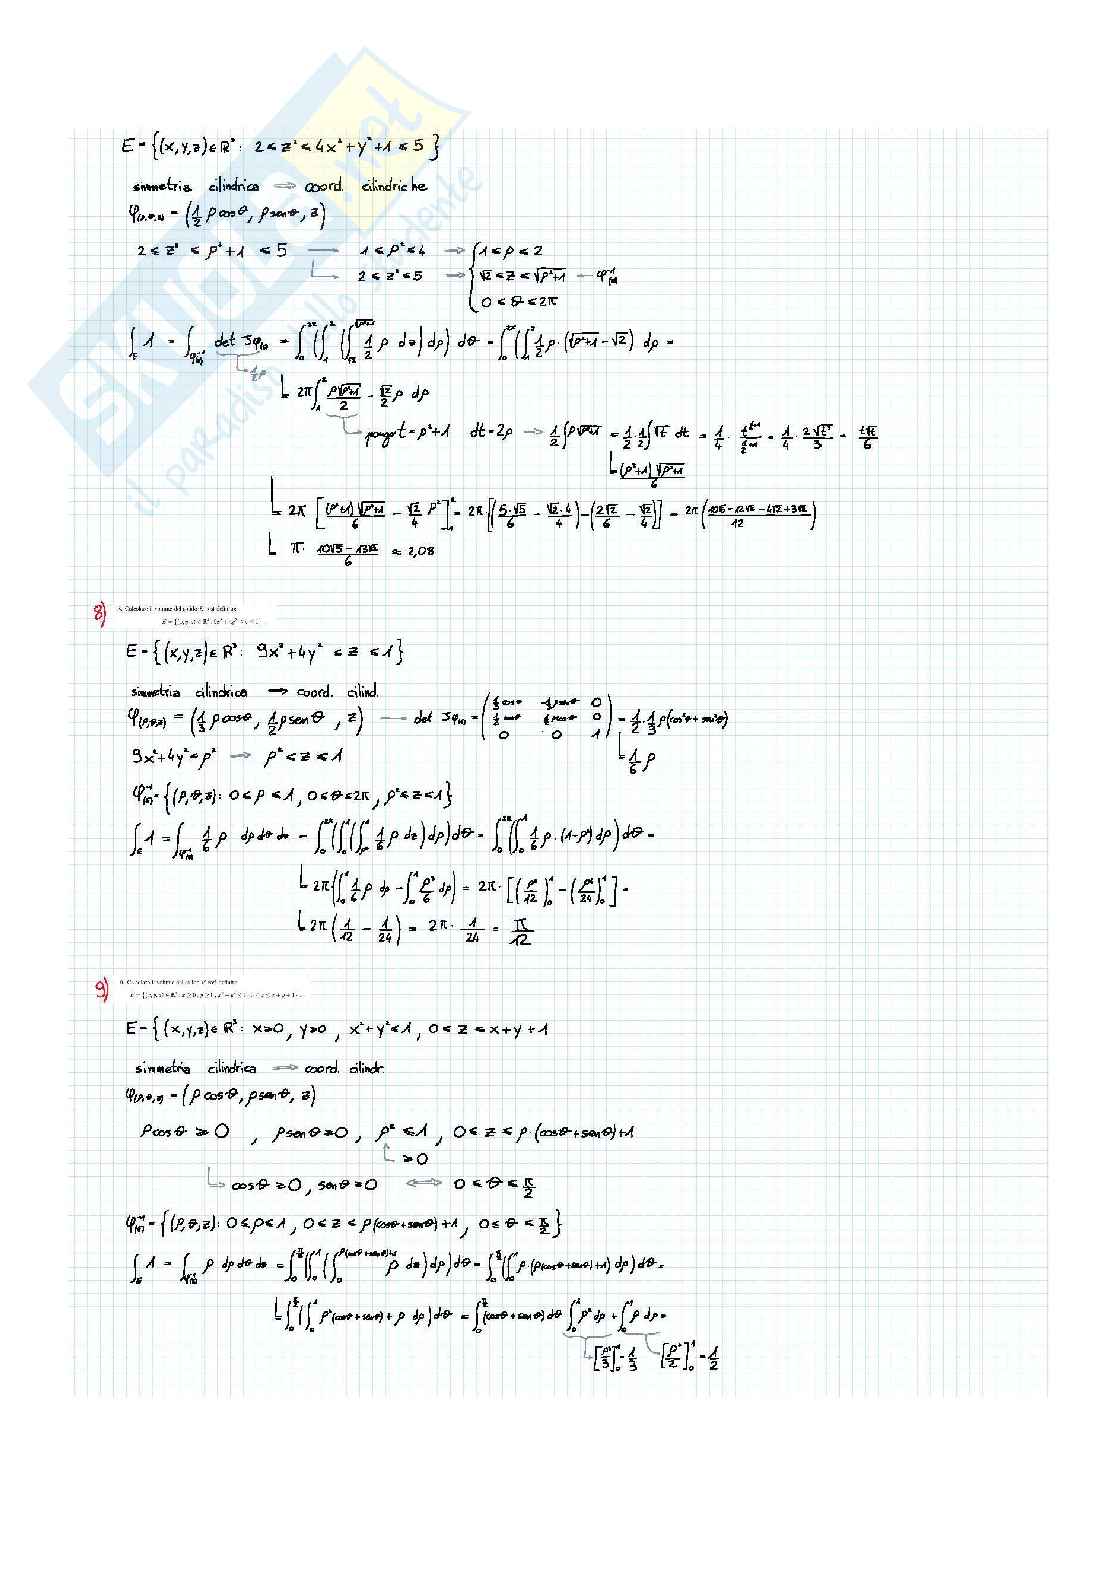 E = {(x,y,z) ∈ ℝ³ : 2 ≤ z² ≤ 4x² + y² + 1 ≤ 5}
simmetria cilindrica ⟹ coord. cilindriche
φ(ρ,θ,z) = (1/2 ρ cosθ, ρ senθ, z)
2 ≤ z² ≤ ρ² + 1 ≤ 5 → 1 ≤ ρ² ≤ 4 ⟹ { 1 ≤ ρ ≤ 2
2 ≤ z² ≤ 5 ⟹ √2 ≤ z ≤ √(ρ²+1) — φ⁻¹(E)
0 ≤ θ ≤ 2π
∫_E 1 = ∫_φ⁻¹(E) det Jφ = ∫_0^2π (∫_1^2 (∫_√2^√(ρ²+1) 1/2 ρ dz) dρ) dθ = ∫_0^2π (∫_1^2 1/2 ρ · (√(ρ²+1) − √2) dρ =
1/2 ρ
2π ∫_1^2 ρ√(ρ²+1)/2 − √2/2 ρ dρ
pongo t = ρ²+1 dt = 2ρ → 1/2 ∫ρ√(ρ²+1) = 1/2 · 1/2 ∫√t dt = 1/4 · t^(1/2+1)/(1/2+1) = 1/4 · 2√t³/3 = t√t/6
(ρ²+1)√(ρ²+1)/6
2π [(ρ²+1)√(ρ²+1)/6 − √2/4 ρ²]_1^2 = 2π [(5·√5/6 − √2·4/4) − (2√2/6 − √2/4)] = 2π (10√5 − 12√2 − 4√2 + 3√2 / 12)
π · 10√5 − 13√2 / 6 ≈ 2,08
8)
E = {(x,y,z) ∈ ℝ³ : 9x² + 4y² ≤ z ≤ 1}
simmetria cilindrica → coord. cilind.
φ(ρ,θ,z) = (1/3 ρ cosθ, 1/2 ρ senθ, z) — det Jφ = = 1/2 · 1/3 ρ(cos²θ + sen²θ)
9x² + 4y² = ρ² → ρ² ≤ z ≤ 1
1/6 ρ
φ⁻¹(E) = {(ρ,θ,z) : 0 ≤ ρ ≤ 1, 0 ≤ θ ≤ 2π, ρ² ≤ z ≤ 1}
∫_E 1 = ∫_φ⁻¹(E) 1/6 ρ dρ dθ dz = ∫_0^2π (∫_0^1 (∫_ρ²^1 1/6 ρ dz) dρ) dθ = ∫_0^2π (∫_0^1 1/6 ρ · (1−ρ²) dρ) dθ =
2π (∫_0^1 1/6 ρ dρ − ∫_0^1 ρ³/6 dρ) = 2π · [(ρ²/12)_0^1 − (ρ⁴/24)_0^1] =
2π (1/12 − 1/24) = 2π · 1/24 = π/12
9)
E = {(x,y,z) ∈ ℝ³ : x ≥ 0, y ≥ 0, x² + y² ≤ 1, 0 ≤ z ≤ x + y + 1
simmetria cilindrica ⟹ coord. cilindr.
φ(ρ,θ,z) = (ρ cosθ, ρ senθ, z)
ρ cosθ ≥ 0, ρ senθ ≥ 0, ρ² ≤ 1, 0 ≤ z ≤ ρ · (cosθ + senθ) + 1
≥ 0
cosθ ≥ 0, senθ ≥ 0 ⟺ 0 ≤ θ ≤ π/2
φ⁻¹(E) = {(ρ,θ,z) : 0 ≤ ρ ≤ 1, 0 ≤ z ≤ ρ(cosθ + senθ) + 1, 0 ≤ θ ≤ π/2}
∫_E 1 = ∫_φ⁻¹(E) ρ dρ dθ dz = ∫_0^π/2 (∫_0^1 (∫_0^ρ(cosθ+senθ)+1 ρ dz) dρ) dθ = ∫_0^π/2 (∫_0^1 ρ · (ρ(cosθ + senθ) + 1) dρ) dθ =
∫_0^π/2 (∫_0^1 ρ²(cosθ + senθ) + ρ dρ) dθ = ∫_0^π/2 (cosθ + senθ) dθ ∫_0^1 ρ² dρ + ∫_0^1 ρ dρ =
[ρ³/3]_0^1 = 1/3 [ρ²/2]_0^1 = 1/2